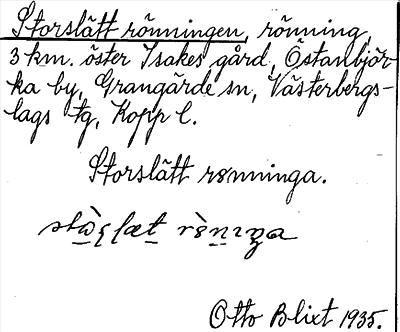 Storslätt rönningen, rönning,
3 km. öster Isakes gård, Östanbjör-
ka by, Grangärde sn, Västerbergs-
lags tg, Kopp l.
Storslätt rönninga.
Otto Blixt 1935.